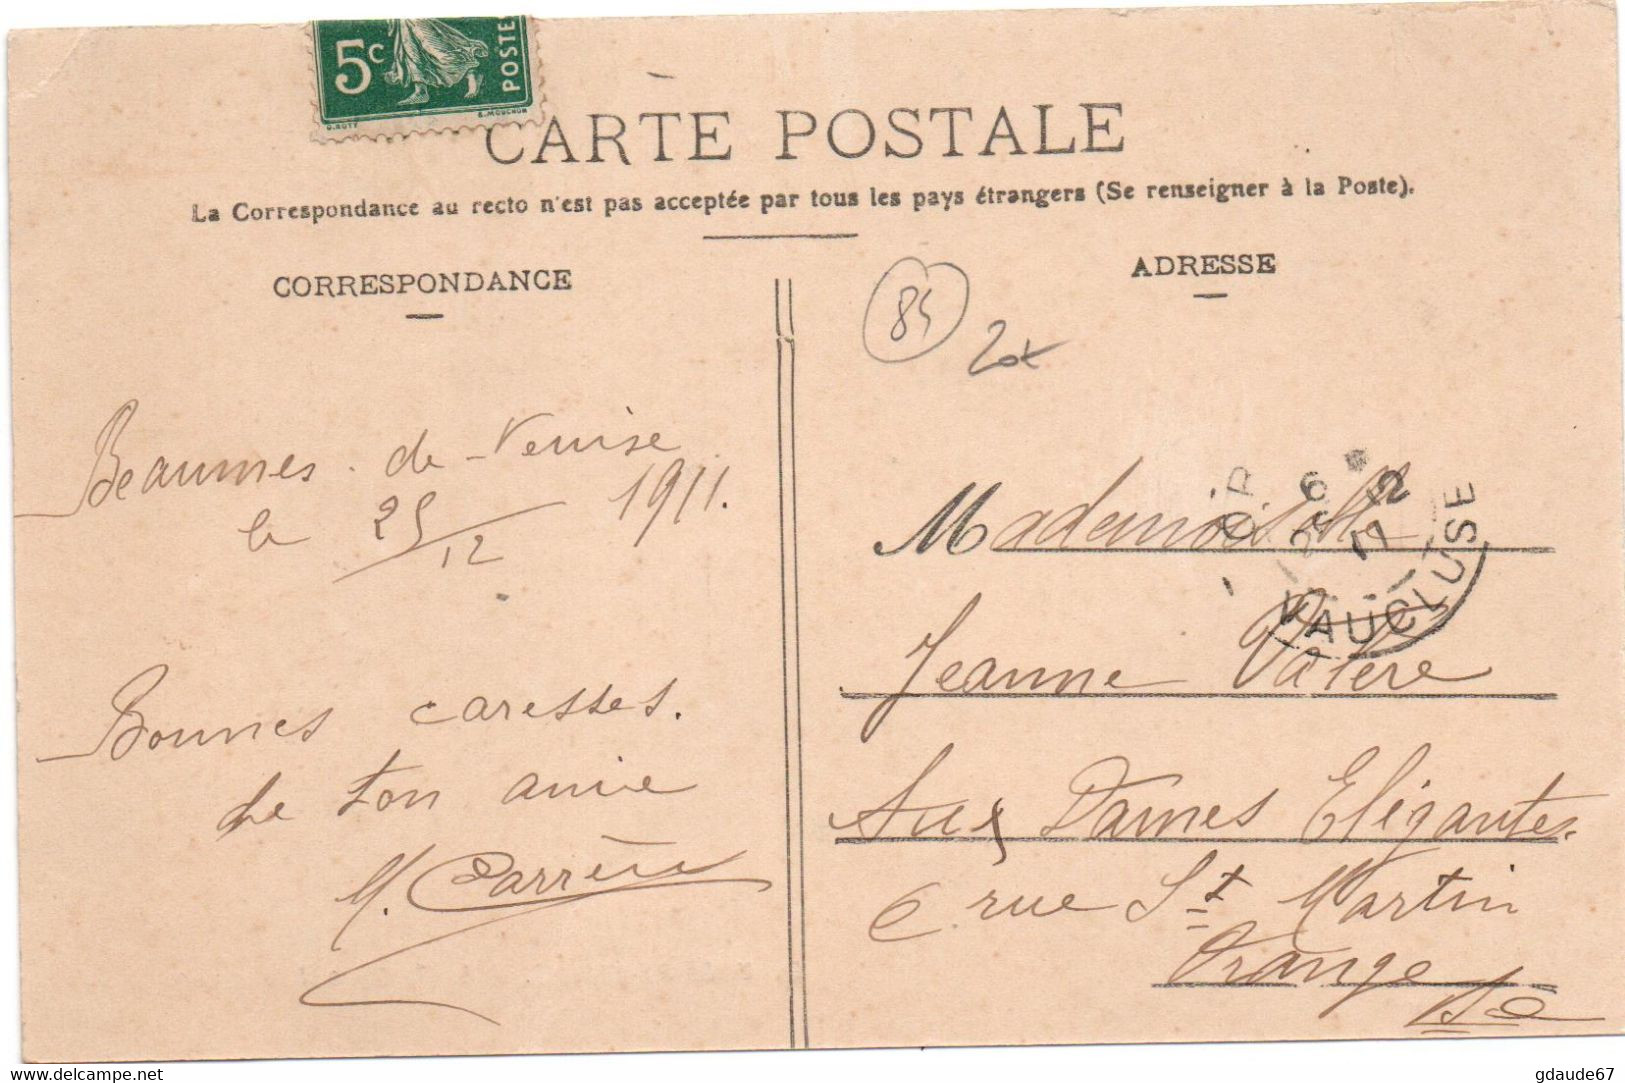 5c
POSTE
O.ROTY
E.MOUCHON
CARTE POSTALE
La Correspondance au recto n'est pas acceptée par tous les pays étrangers (Se renseigner à la Poste).
CORRESPONDANCE
ADRESSE
84
Beaumes-de-Venise
le 25/12 1911.
Bonnes caresses.
de ton amie
M. Carrère
Mademoiselle
Jeanne Valère
Aux Dames Elégantes.
6 rue St Martin
Orange
VAUCLUSE
www.delcampe.net
gdaude67